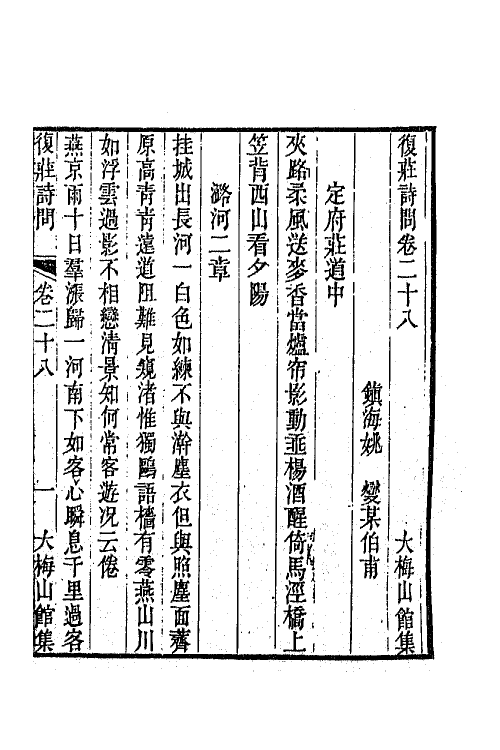 復莊詩問卷二十八　大梅山館集
鎮海姚　燮某伯甫
定府莊道中
夾路柔風送麥香當爐帘影動垂楊酒醒倚馬溼橋上
笠背西山看夕陽
潞河二章
挂城出長河一白色如練不與澣塵衣但與照塵面薺
原高青青遠道阻難見窺渚惟獨鷗語檣有零燕山川
如浮雲過影不相戀清景知何常客遊况云倦
燕京雨十日羣漲歸一河南下如客心瞬息千里過客
復莊詩問　卷二十八　一　大梅山館集